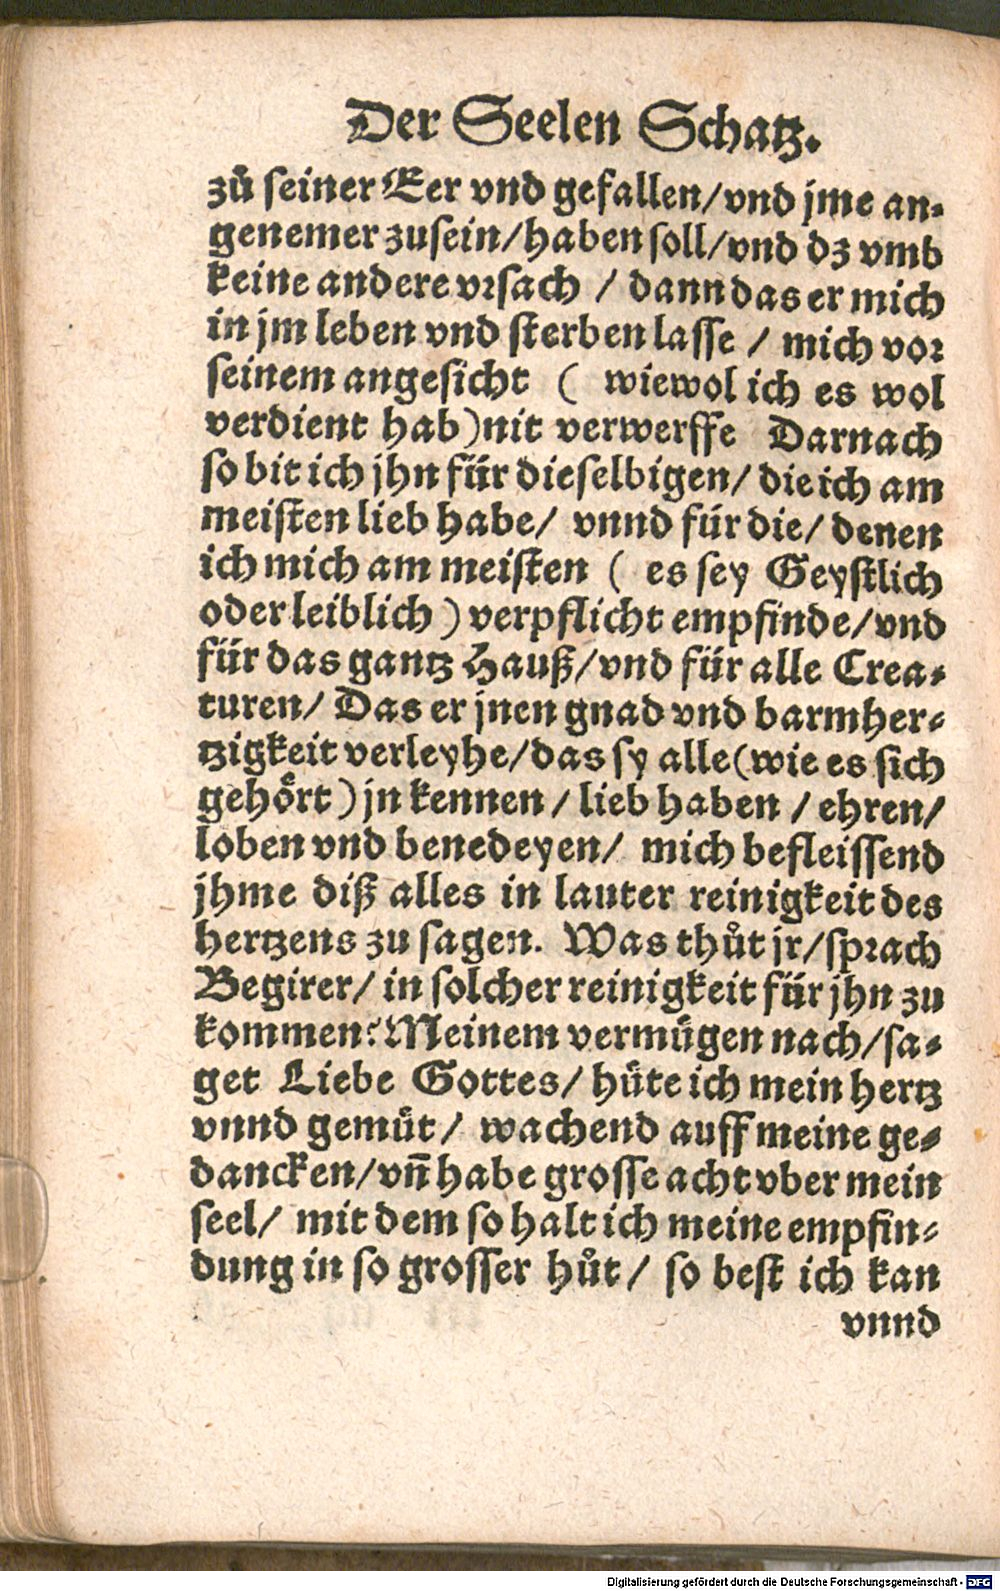 Der Seelen Schatz.
zů seiner Eer vnd gefallen/vnd jme an-
genemer zusein/haben soll/vnd dz vmb
keine andere vrsach / dann das er mich
in jm leben vnd sterben lasse / mich vor
seinem angesicht ( wiewol ich es wol
verdient hab)nit verwerffe Darnach
so bit ich jhn für dieselbigen/ die ich am
meisten lieb habe/ vnnd für die/ denen
ich mich am meisten ( es sey Geystlich
oder leiblich ) verpflicht empfinde/vnd
für das gantz Hauß/vnd für alle Crea-
turen/ Das er jnen gnad vnd barmher-
tzigkeit verleyhe/das sy alle(wie es sich
gehört)jn kennen / lieb haben / ehren/
loben vnd benedeyen/ mich befleissend
jhme diß alles in lauter reinigkeit des
hertzens zu sagen. Was thůt jr/sprach
Begirer/ in solcher reinigkeit für jhn zu
kommen? Meinem vermügen nach/sa-
get Liebe Gottes/ hüte ich mein hertz
vnnd gemüt/ wachend auff meine ge-
dancken/vñ habe grosse acht vber mein
seel/ mit dem so halt ich meine empfin-
dung in so grosser hůt/ so best ich kan
vnnd
Digitalisierung gefördert durch die Deutsche Forschungsgemeinschaft - DFG